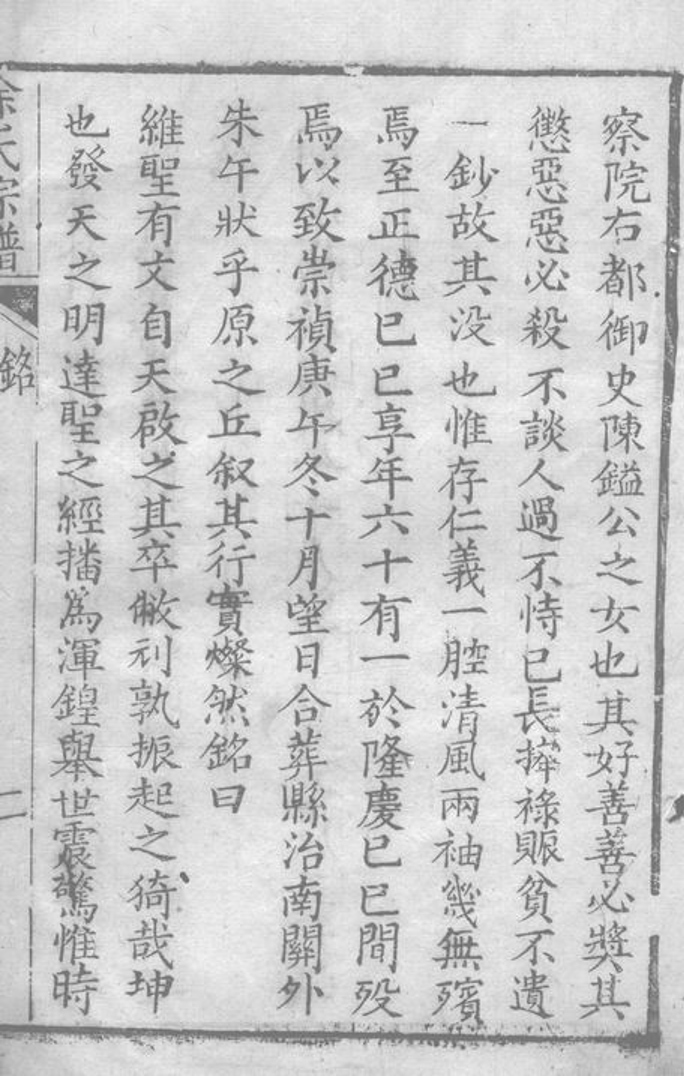 察院右都御史陳鎰公之女也其好善善必獎其
懲惡惡必殺不談人過不恃已長捧祿賑貧不遺
一鈔故其没也惟存仁義一腔清風兩袖幾無殯
焉至正德巳巳享年六十有一於隆慶巳巳間殁
焉以致崇禎庚午冬十月望日合葬縣治南關外
朱午狀乎原之丘叙其行實燦然銘曰
維聖有文自天啟之其卒敝刓孰振起之猗哉坤
也發天之明達聖之經播為渾鍠舉世震驚惟時
氏宗譜
銘
二